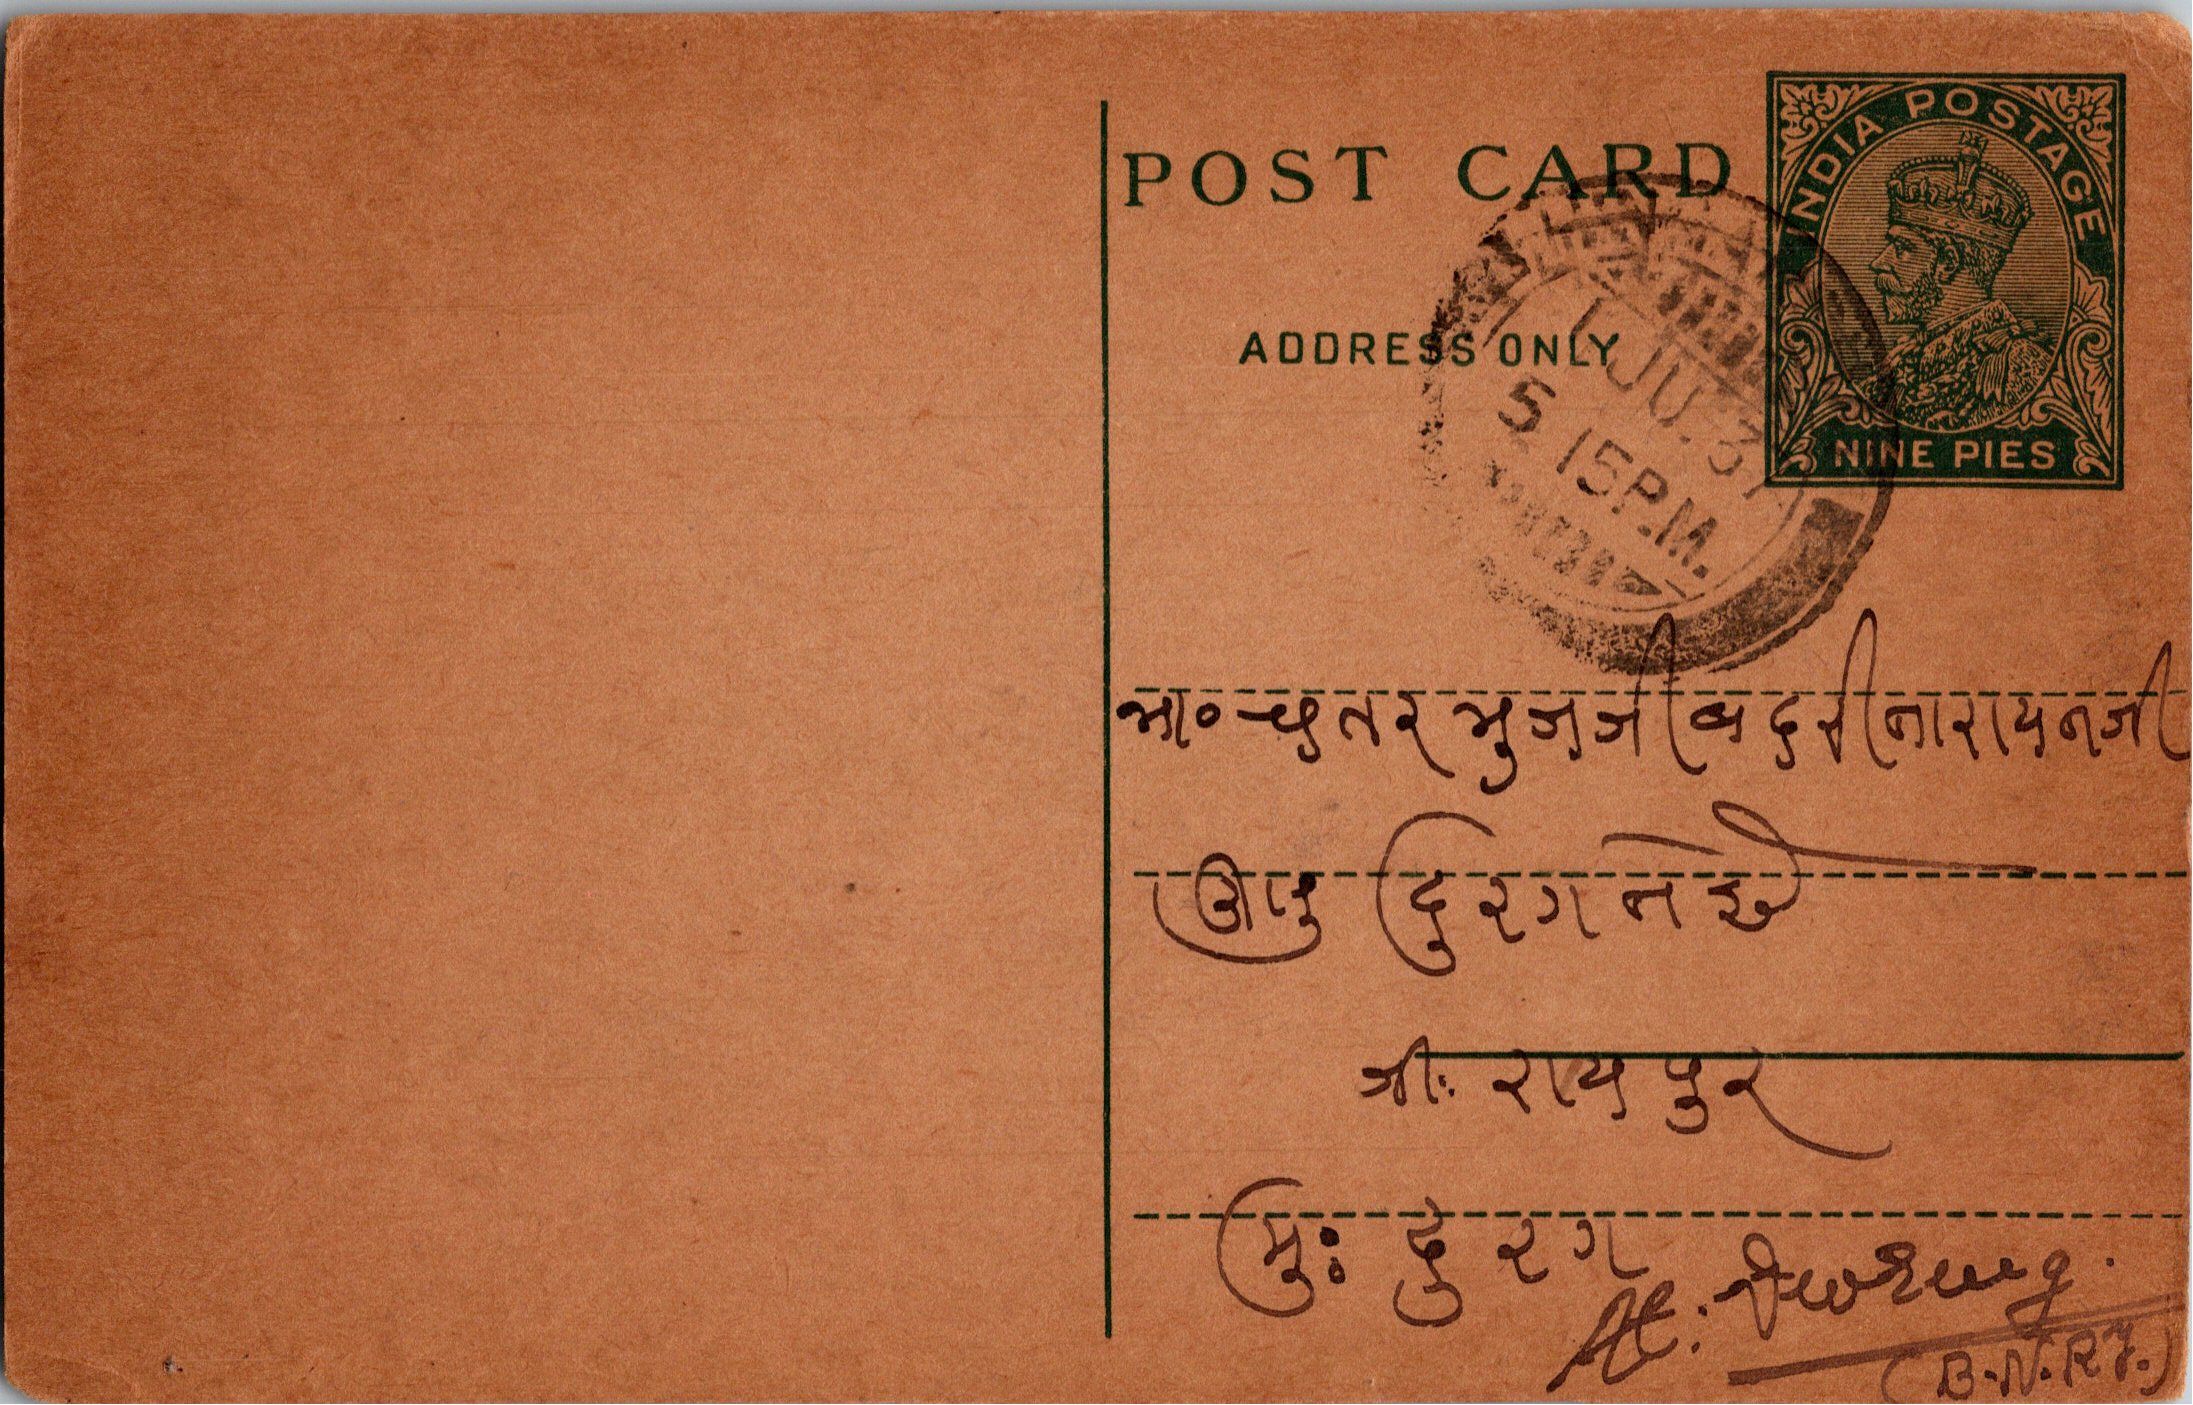 POST CARD
INDIA POSTAGE
NINE PIES
ADDRESS ONLY
1 JU. 37
5 15 P.M.
भा० चतुर भुजजी बदरीनारायनजी
दुरग
जी: रायपुर
मु: दुरग
(B.N.RY.)